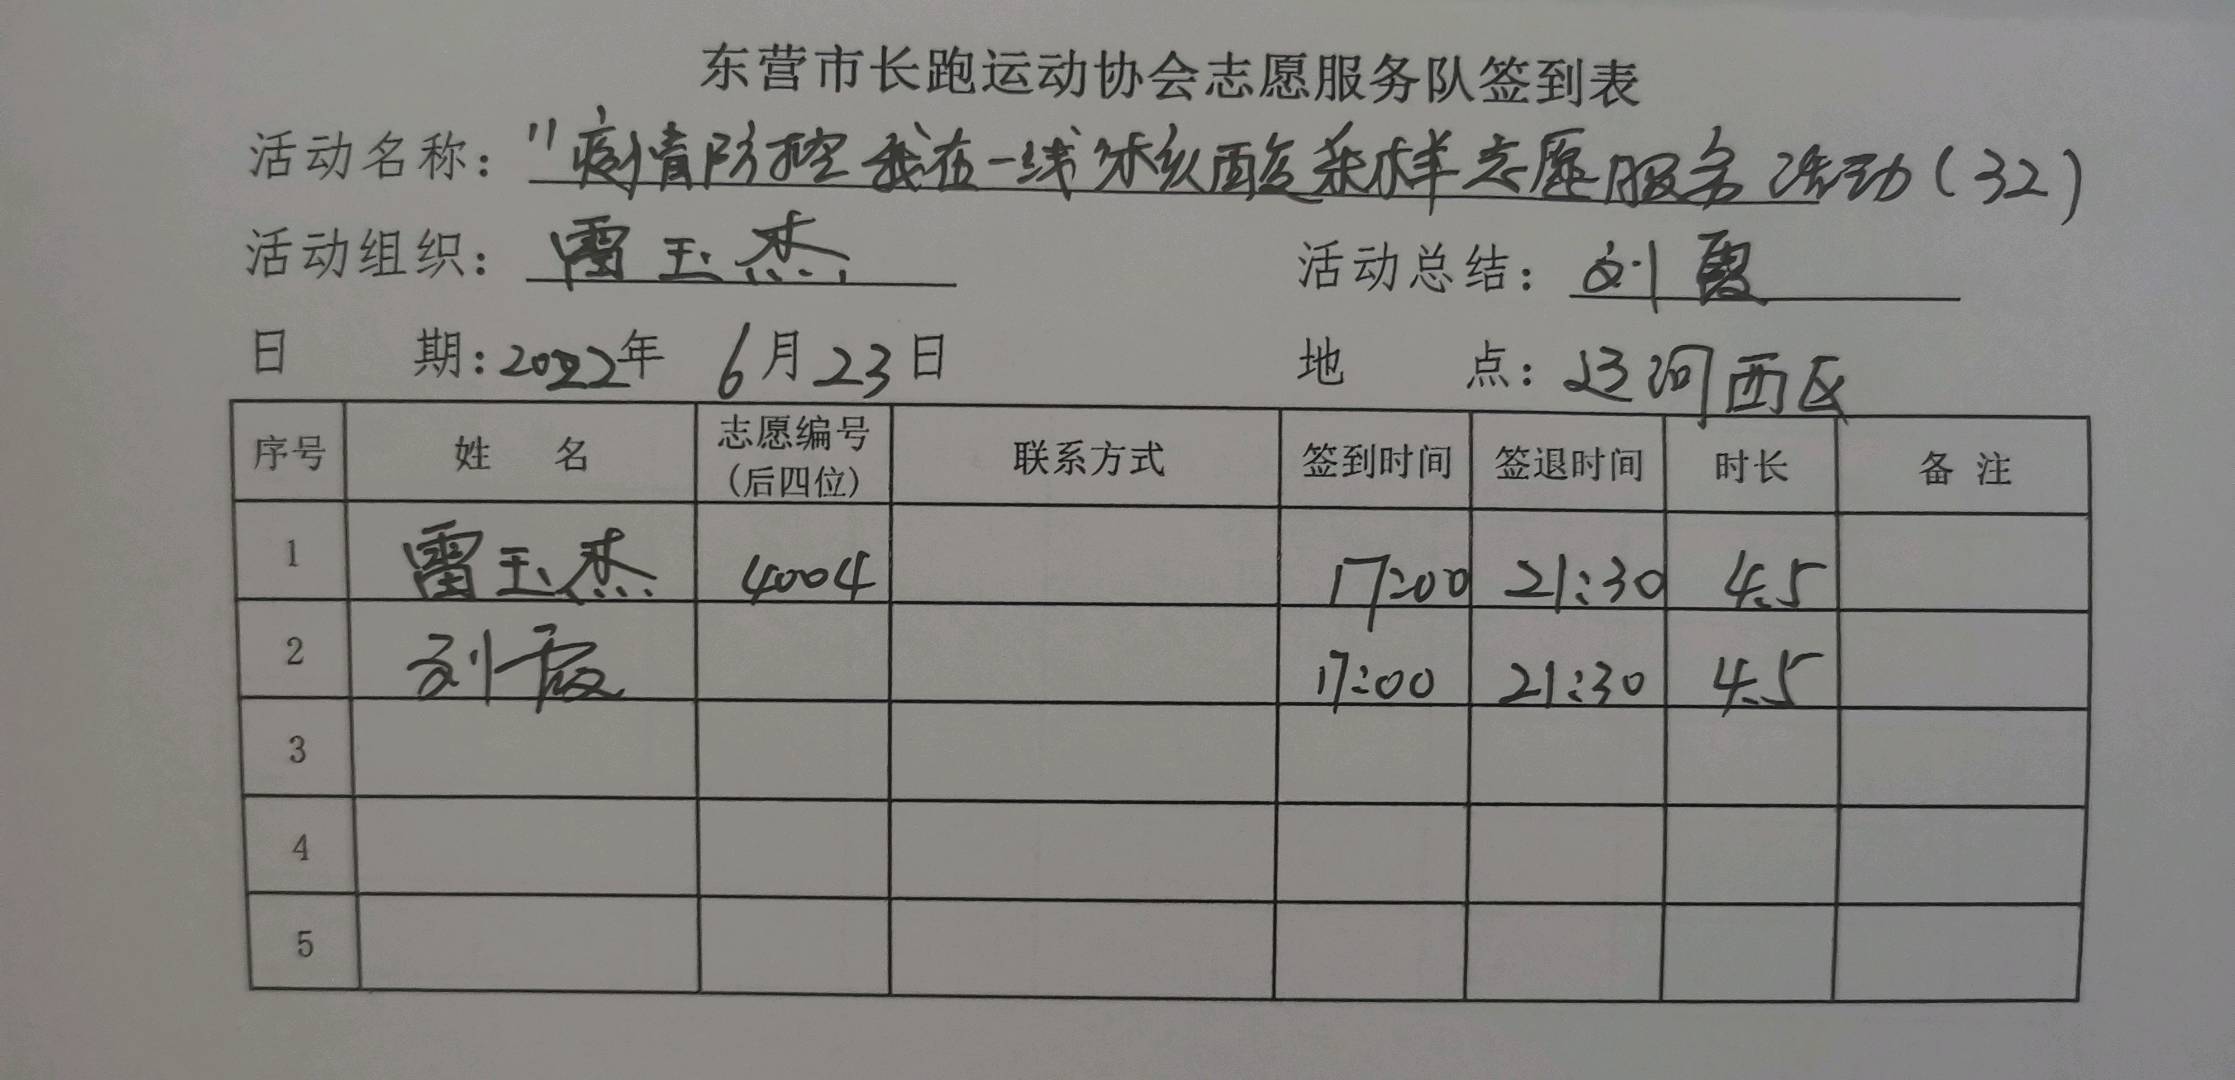 东营市长跑运动协会志愿服务队签到表
活动名称："疫情防控我在一线"核酸采样志愿服务活动(32)
活动组织：雷玉杰 活动总结：刘霞
日 期：2022年 6月23日 地 点：辽河西区
序号 姓 名 志愿编号(后四位) 联系方式 签到时间 签退时间 时长 备 注
1 雷玉杰 4004 17:00 21:30 4.5
2 刘霞 17:00 21:30 4.5
3
4
5